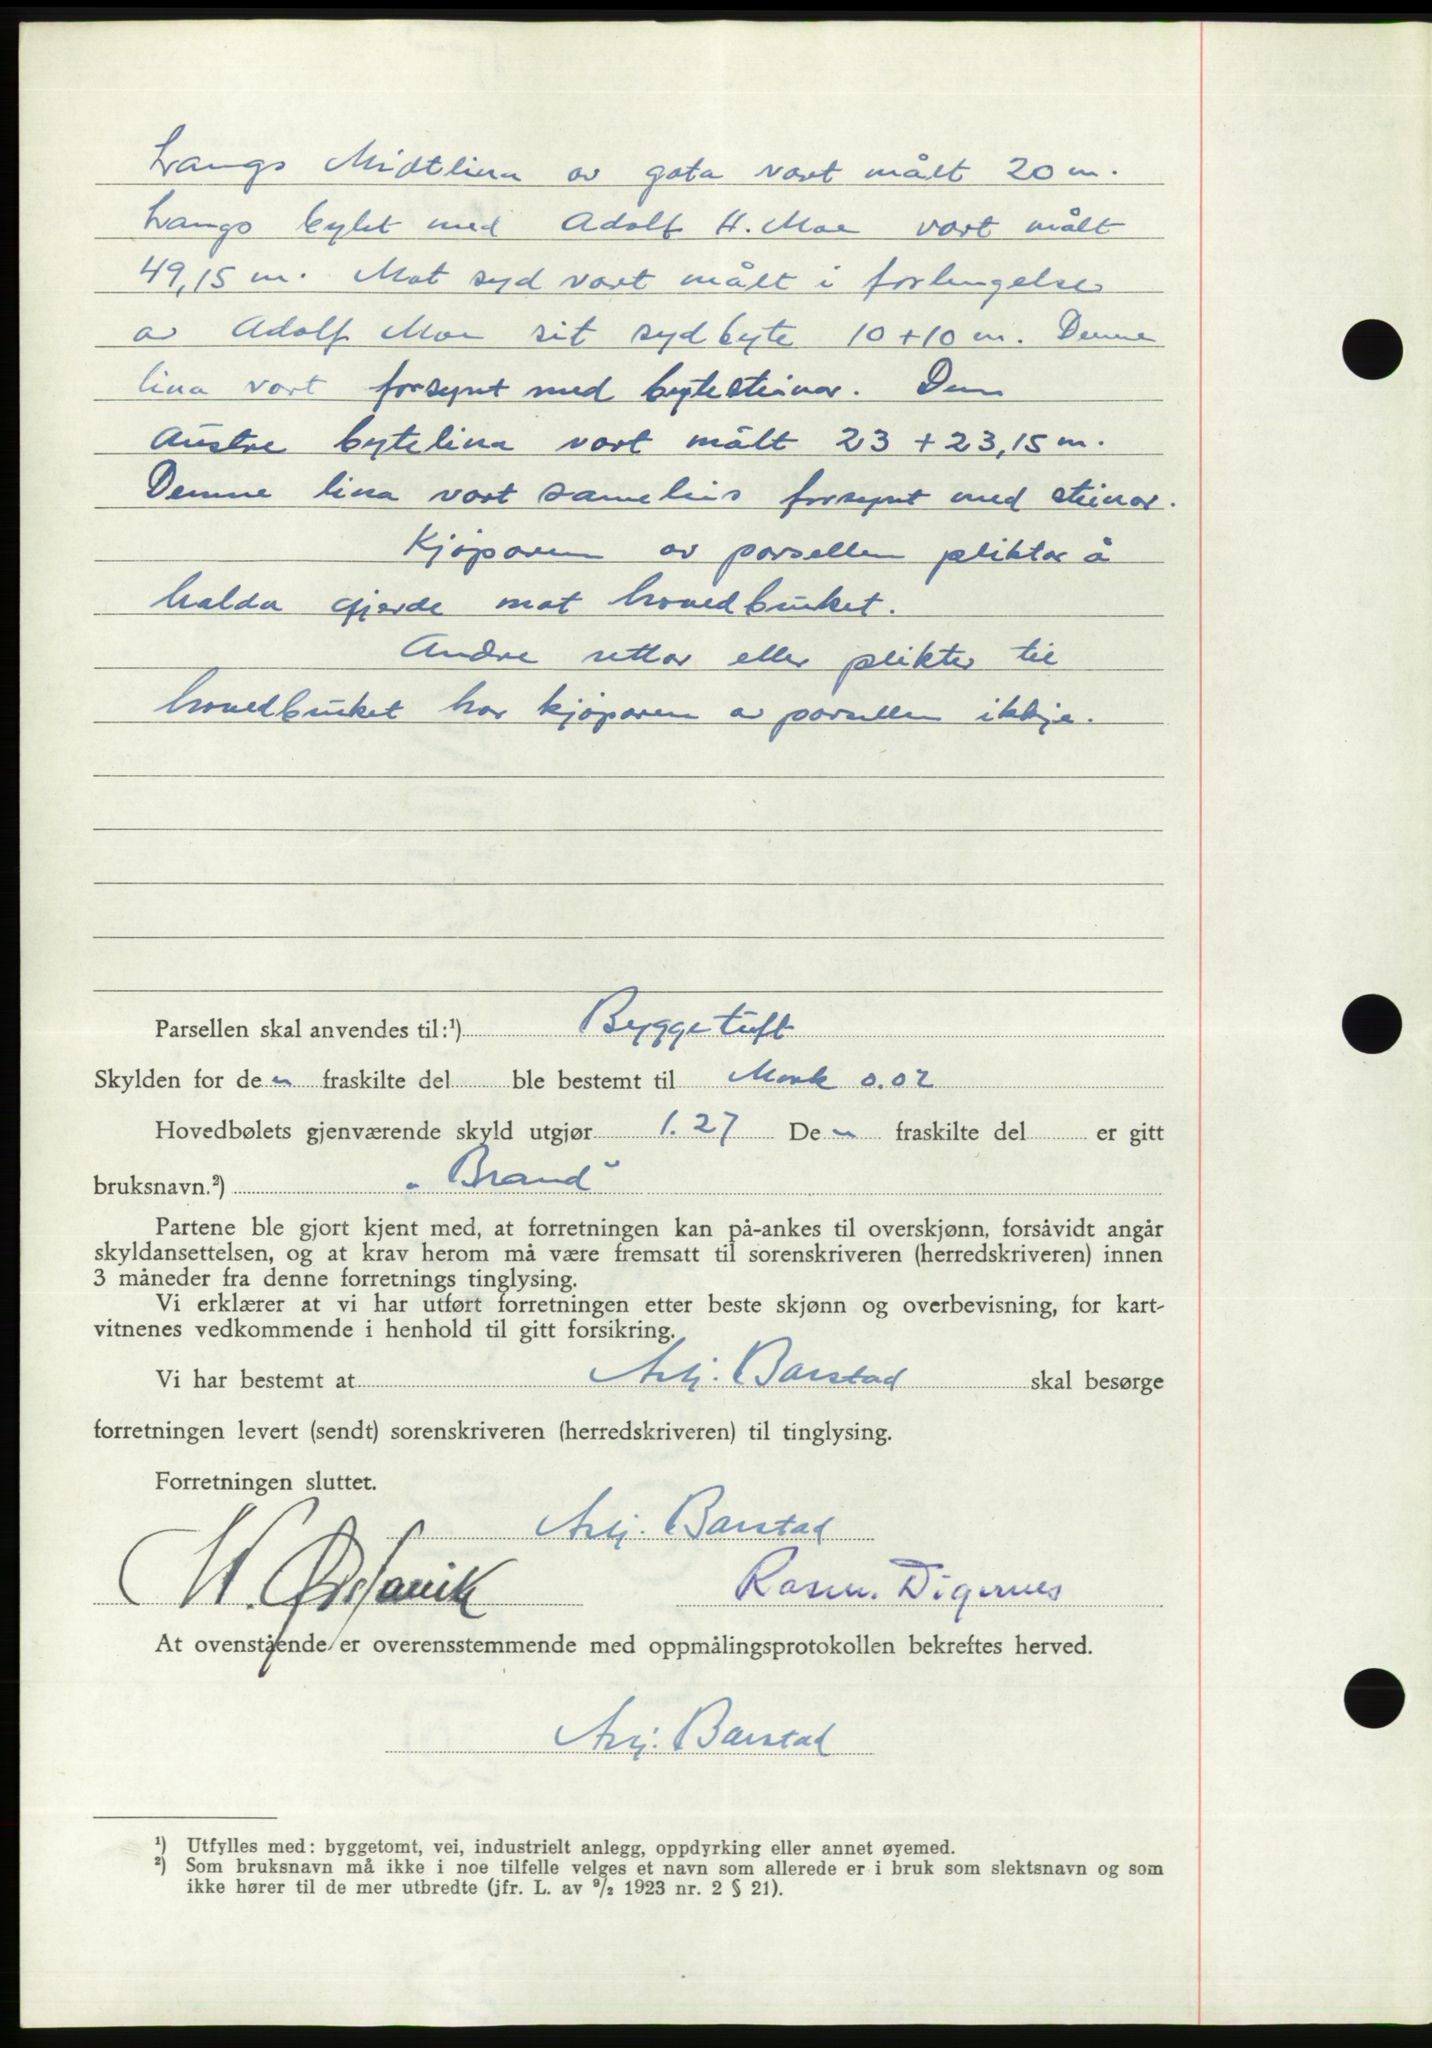 Langs Midtlina av gata vart målt 20 m.
Langs bytet med Adolf H. Moe vart målt
49,15 m. Mot syd vart målt i forlengelse
av Adolf Moe sit sydbyte 10 + 10 m. Denne
lina vart forsynt med bytesteinar. Den
Austre bytelina vart målt 23 + 23,15 m.
Denne lina vart sameleis forsynt med steinar.
Kjøparen av parsellen pliktar å
halda gjerde mot hovedbruket.
Andre rettar eller plikter til
hovedbruket har kjøparen av parsellen ikkje.
Parsellen skal anvendes til:¹) Byggetuft
Skylden for de n fraskilte del ble bestemt til Mark 0.02
Hovedbølets gjenværende skyld utgjør 1.27 De n fraskilte del er gitt
bruksnavn.²) „Brand"
Partene ble gjort kjent med, at forretningen kan på-ankes til overskjønn, forsåvidt angår
skyldansettelsen, og at krav herom må være fremsatt til sorenskriveren (herredskriveren) innen
3 måneder fra denne forretnings tinglysing.
Vi erklærer at vi har utført forretningen etter beste skjønn og overbevisning, for kart-
vitnenes vedkommende i henhold til gitt forsikring.
Vi har bestemt at Asbj. Barstad skal besørge
forretningen levert (sendt) sorenskriveren (herredskriveren) til tinglysing.
Forretningen sluttet.
Asbj. Barstad
Rasm. Digernes
At ovenstående er overensstemmende med oppmålingsprotokollen bekreftes herved.
Asbj. Barstad
¹) Utfylles med: byggetomt, vei, industrielt anlegg, oppdyrking eller annet øyemed.
²) Som bruksnavn må ikke i noe tilfelle velges et navn som allerede er i bruk som slektsnavn og som
ikke hører til de mer utbredte (jfr. L. av ⁹/₂ 1923 nr. 2 § 21).